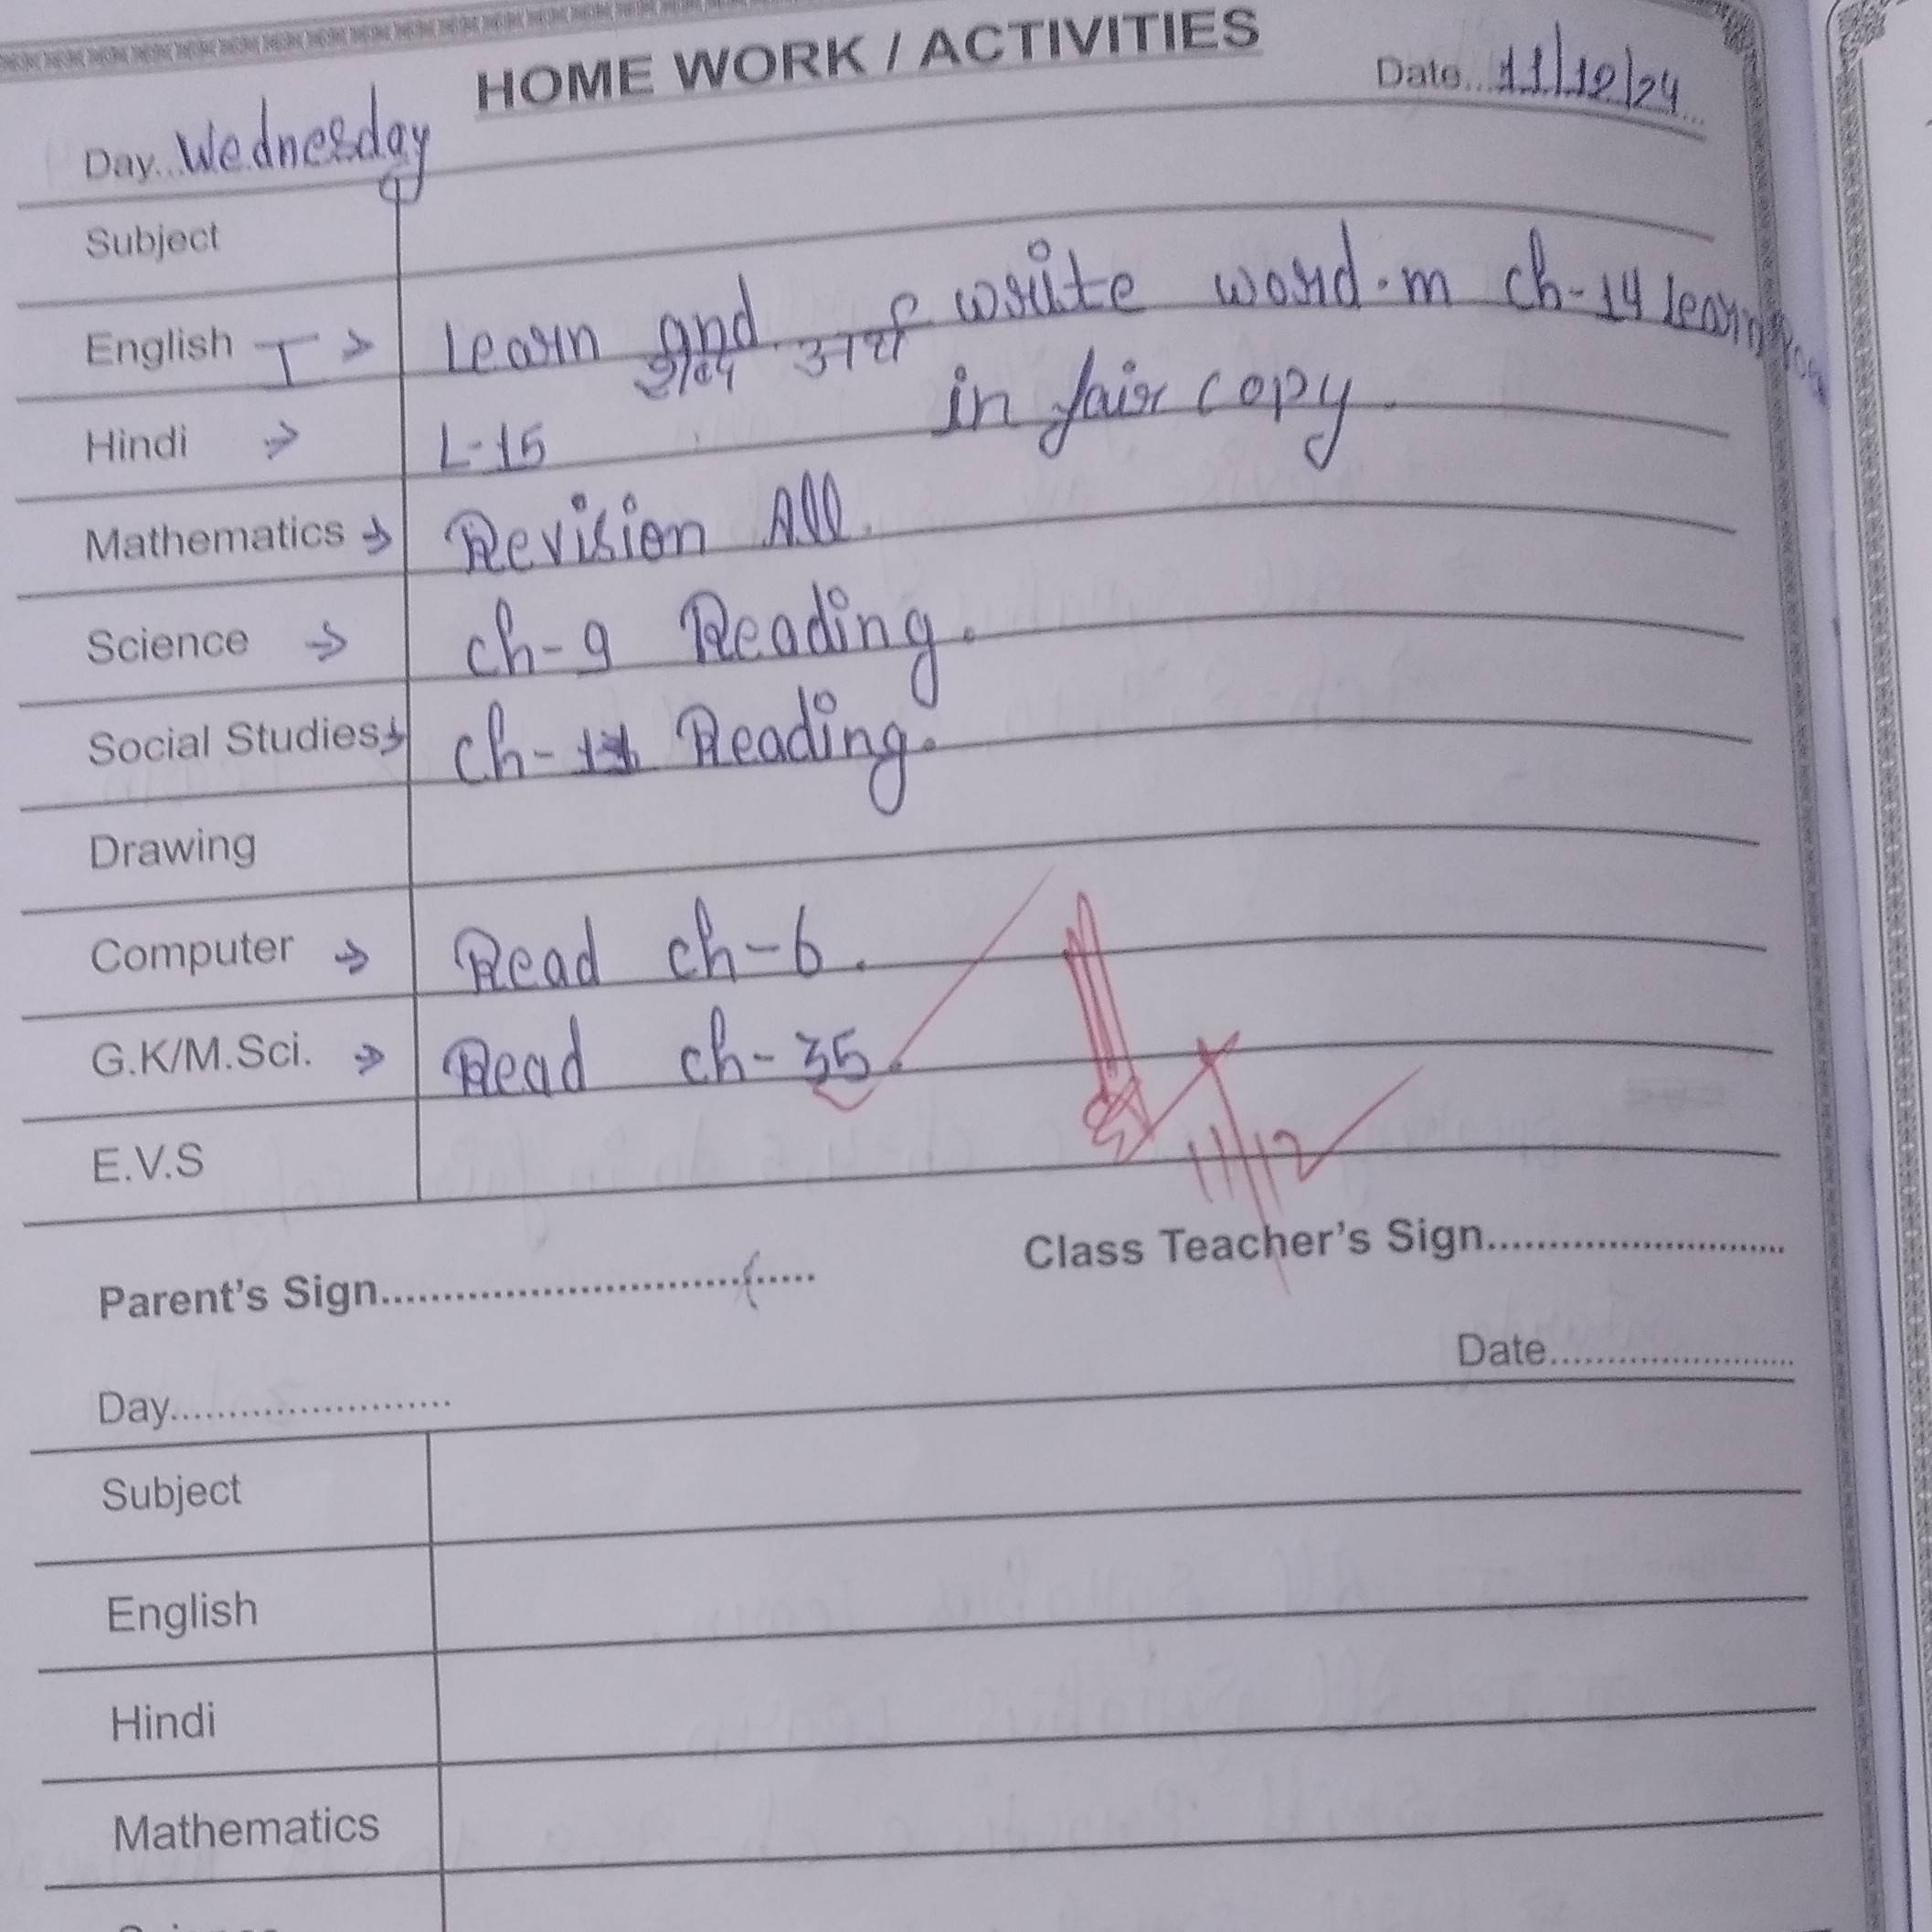 HOME WORK / ACTIVITIES
Day... Wednesday Date... 11/12/24
Subject
English I > Learn and write word.m ch-14 learn
Hindi → L-15 शब्द अर्थ in fair copy.
Mathematics → Revision All.
Science → ch-9 Reading.
Social Studies → ch-11 Reading.
Drawing
Computer → Read ch-6.
G.K/M.Sci. → Read ch-35.
E.V.S
11/12
Parent's Sign.............................. Class Teacher's Sign..........................
Day........................ Date........................
Subject
English
Hindi
Mathematics